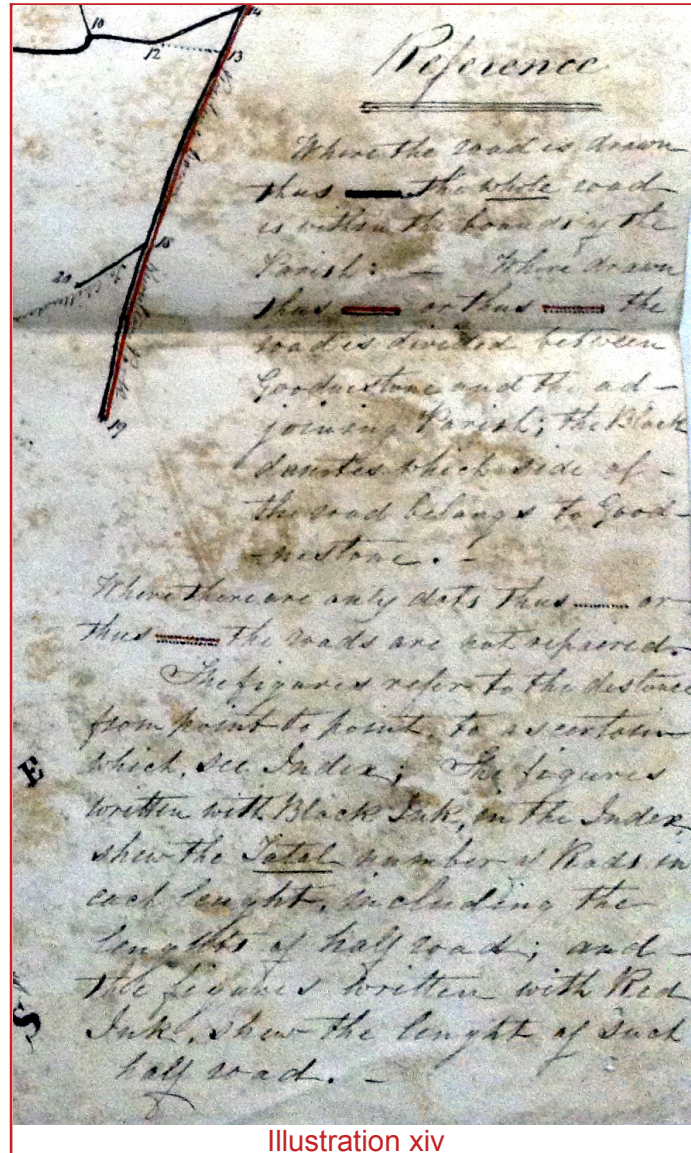 10
14
12
13
Reference
Where the road is drawn
thus the whole road
is within the bounds of the
Parish: — Where drawn
thus or thus the
road is divided between
Goodnestone and the ad-
joining Parish; the Black
denotes which side of -
the road belongs to Good-
-nestone. -
18
20
19
Where there are only dots thus or
thus the roads are not repaired.
The figures refer to the distance
from point to point, to ascertain
which, see Index; The figures
E
written with Black Ink, in the Index,
shew the Total number of Rods in
each lenght, including the
lenghts of half road; and -
the figures written with Red
S
Ink, shew the lenght of such
half road. -
Illustration xiv